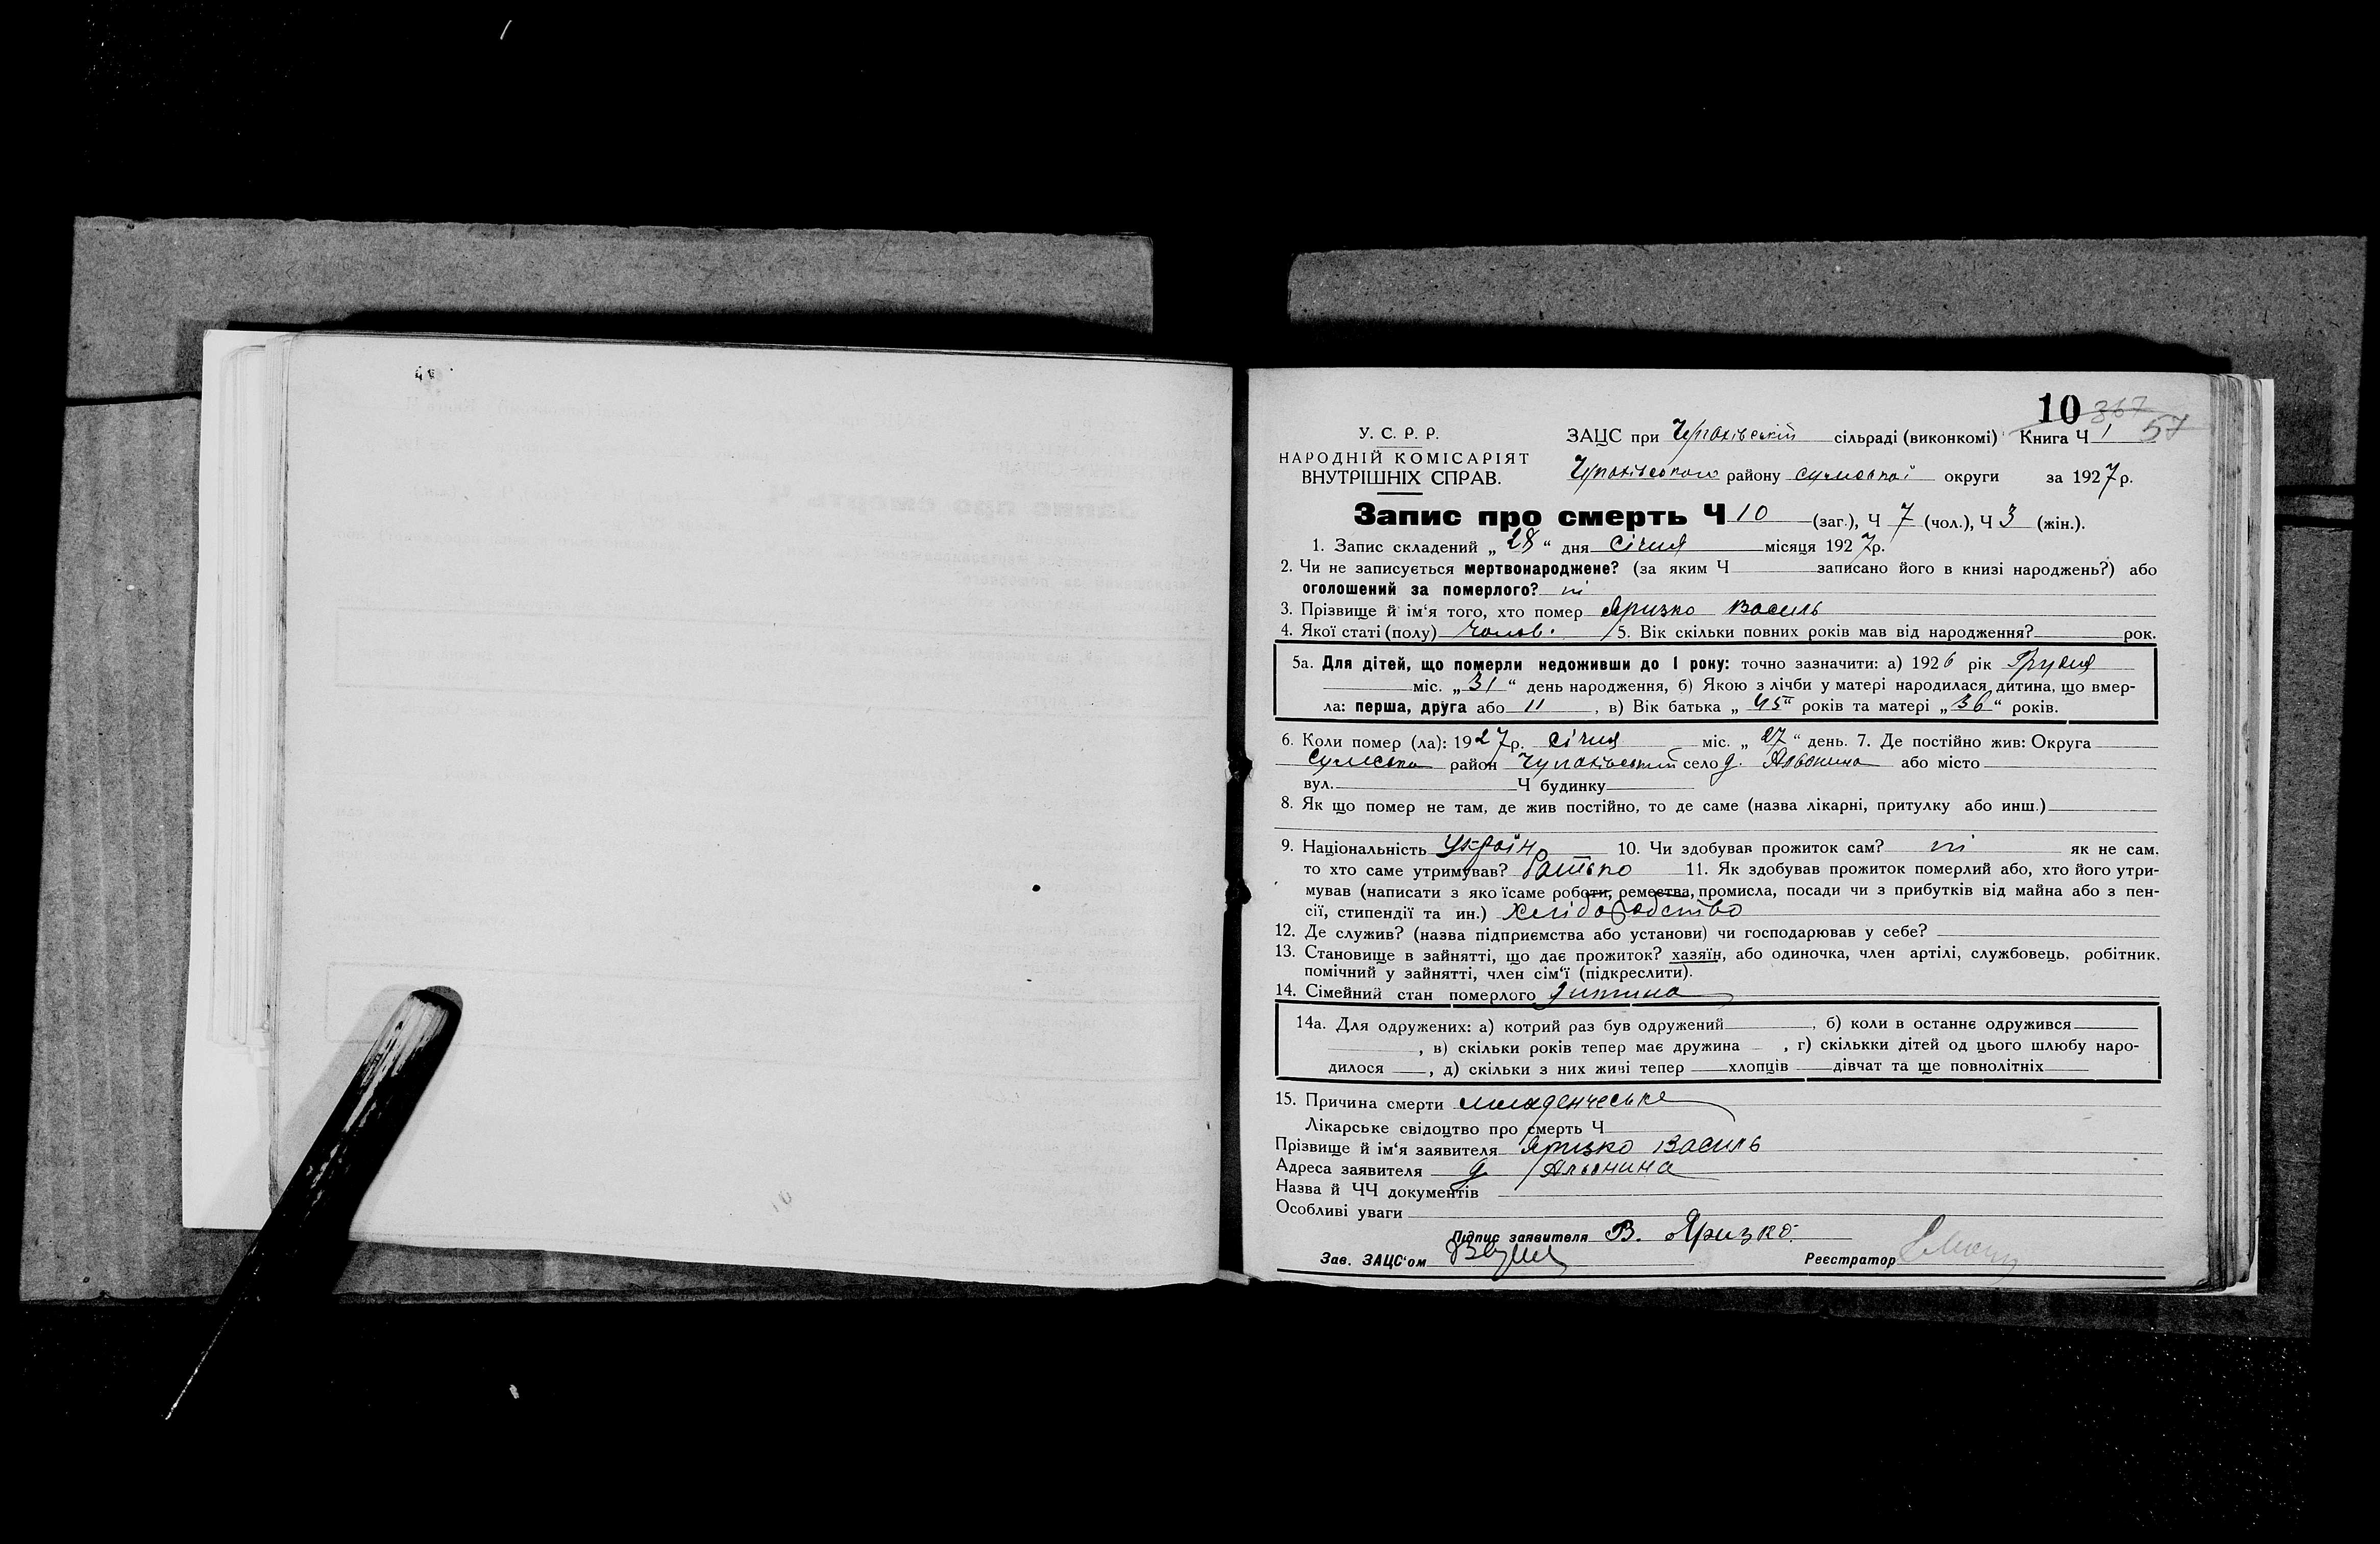 10 367
57
У. С. Р. Р.
НАРОДНІЙ КОМІСАРІЯТ
ВНУТРІШНІХ СПРАВ.
ЗАЦС при Чупахівській сільраді (виконкомі) Книга Ч 1
Чупахівського району Сумської округи за 1927 р.
Запис про смерть Ч 10 (заг.), Ч 7 (чол.), Ч 3 (жін.).
1. Запис складений „ 28 “ дня Січня місяця 1927 р.
2. Чи не записується мертвонароджене? (за яким Ч записано його в книзі народжень?) або
оголошений за померлого? ні
3. Прізвище й ім‘я того, хто помер Яризко Василь
4. Якої статі (полу) Чолов. 5. Вік скільки повних років мав від народження? рок.
5а. Для дітей, що померли недоживши до 1 року: точно зазначити: а) 1926 рік Грудня
міс. „ 31 “ день народження, б) Якою з лічби у матері народилася дитина, що вмер-
ла: перша, друга або 11 , в) Вік батька „ 45 “ років та матері „ 36 “ років.
6. Коли помер (ла): 1927 р. Січня міс. „ 27 “ день. 7. Де постійно жив: Округа
Сумська район Чупахівський село д. Альонина або місто
вул. Ч будинку
8. Як що помер не там, де жив постійно, то де саме (назва лікарні, притулку або инш.)
9. Національність Україн. 10. Чи здобував прожиток сам? ні як не сам.
то хто саме утримував? батько 11. Як здобував прожиток померлий або, хто його утри-
мував (написати з яко їсаме роботи, ремества, промисла, посади чи з прибутків від майна або з пен-
сії, стипендії та ин.) Хлібородство
12. Де служив? (назва підприємства або установи) чи господарював у себе?
13. Становище в зайнятті, що дає прожиток? хазяїн, або одиночка, член артілі, службовець, робітник,
помічний у зайнятті, член сім‘ї (підкреслити).
14. Сімейний стан померлого дитина
14а. Для одружених: а) котрий раз був одружений , б) коли в останнє одружився
, в) скільки років тепер має дружина , г) скількки дітей од цього шлюбу наро-
дилося , д) скільки з них живі тепер хлопців дівчат та ще повнолітніх
15. Причина смерти младенческе
Лікарське свідоцтво про смерть Ч
Прізвище й ім‘я заявителя Яризко Василь
Адреса заявителя д. Альонина
Назва й ЧЧ документів
Особливі уваги
Підпис заявителя В. Яризко.
Зав. ЗАЦС‘ом
Реєстратор